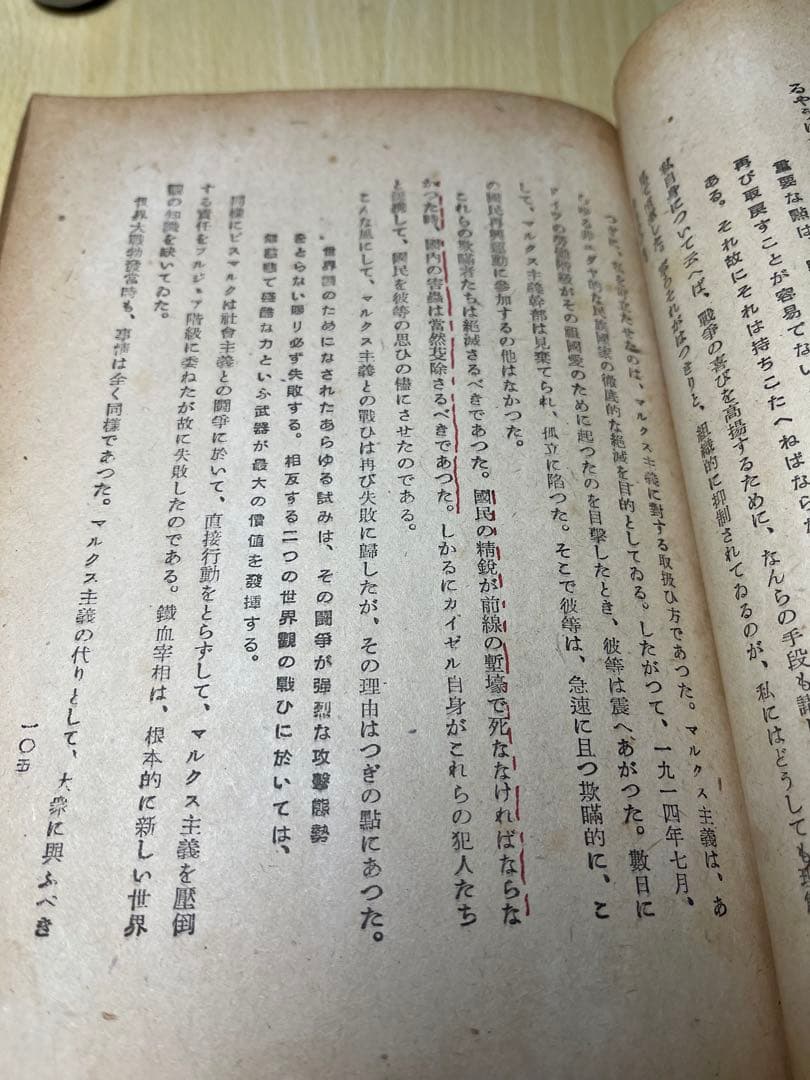 るやうに
重要な點は、
再び取戻すことが容易でない
ある。それ故にそれは持ちこたへねばならな
私自身について云へば、戰爭の喜びを高揚するために、なんらの手段も講
はつきりと、組織的に抑制されてゐるのが、私にはどうしても
つぎに、私を は、マルクス主義に對する取扱ひ方であつた。マルクス主義は、あ
らゆる非ユダヤ的な民族國家の徹底的な絶滅を目的としてゐる。したがつて、一九一四年七月、
ドイツの勞働階級がその祖國愛のために起つたのを目撃したとき、彼等は震へあがつた。數日に
して、マルクス主義幹部は見棄てられ、孤立に陷つた。そこで彼等は、急速に且つ欺瞞的に、こ
の國民再興運動に參加するの他はなかつた。
これらの欺瞞者たちは絶滅さるべきであつた。國民の精鋭が前線の塹壕で死ななければならな
かつた時、國内の害蟲は當然芟除さるべきであつた。しかるにカイゼル自身がこれらの犯人たち
と握手して、國民を彼等の思ひの儘にさせたのである。
こんな風にして、マルクス主義との戰ひは再び失敗に歸したが、その理由はつぎの點にあつた。
世界觀のためになされたあらゆる試みは、その鬪爭が强烈な攻擊態勢
をとらない限り必ず失敗する。相互する二つの世界觀の戰ひに於いては、
無慈悲で殘酷な力といふ武器が最大の價値を發揮する。
同樣にビスマルクは社會主義との鬪爭に於いて、直接行動をとらずして、マルクス主義を壓倒
する責任をブルジョア階級に委ねたが故に失敗したのである。鐵血宰相は、根本的に新しい世界
觀の知識を缺いてゐた。
世界大戰勃發當時も、事情は全く同樣であつた。マルクス主義の代りとして、大衆に與ふべき
一〇五